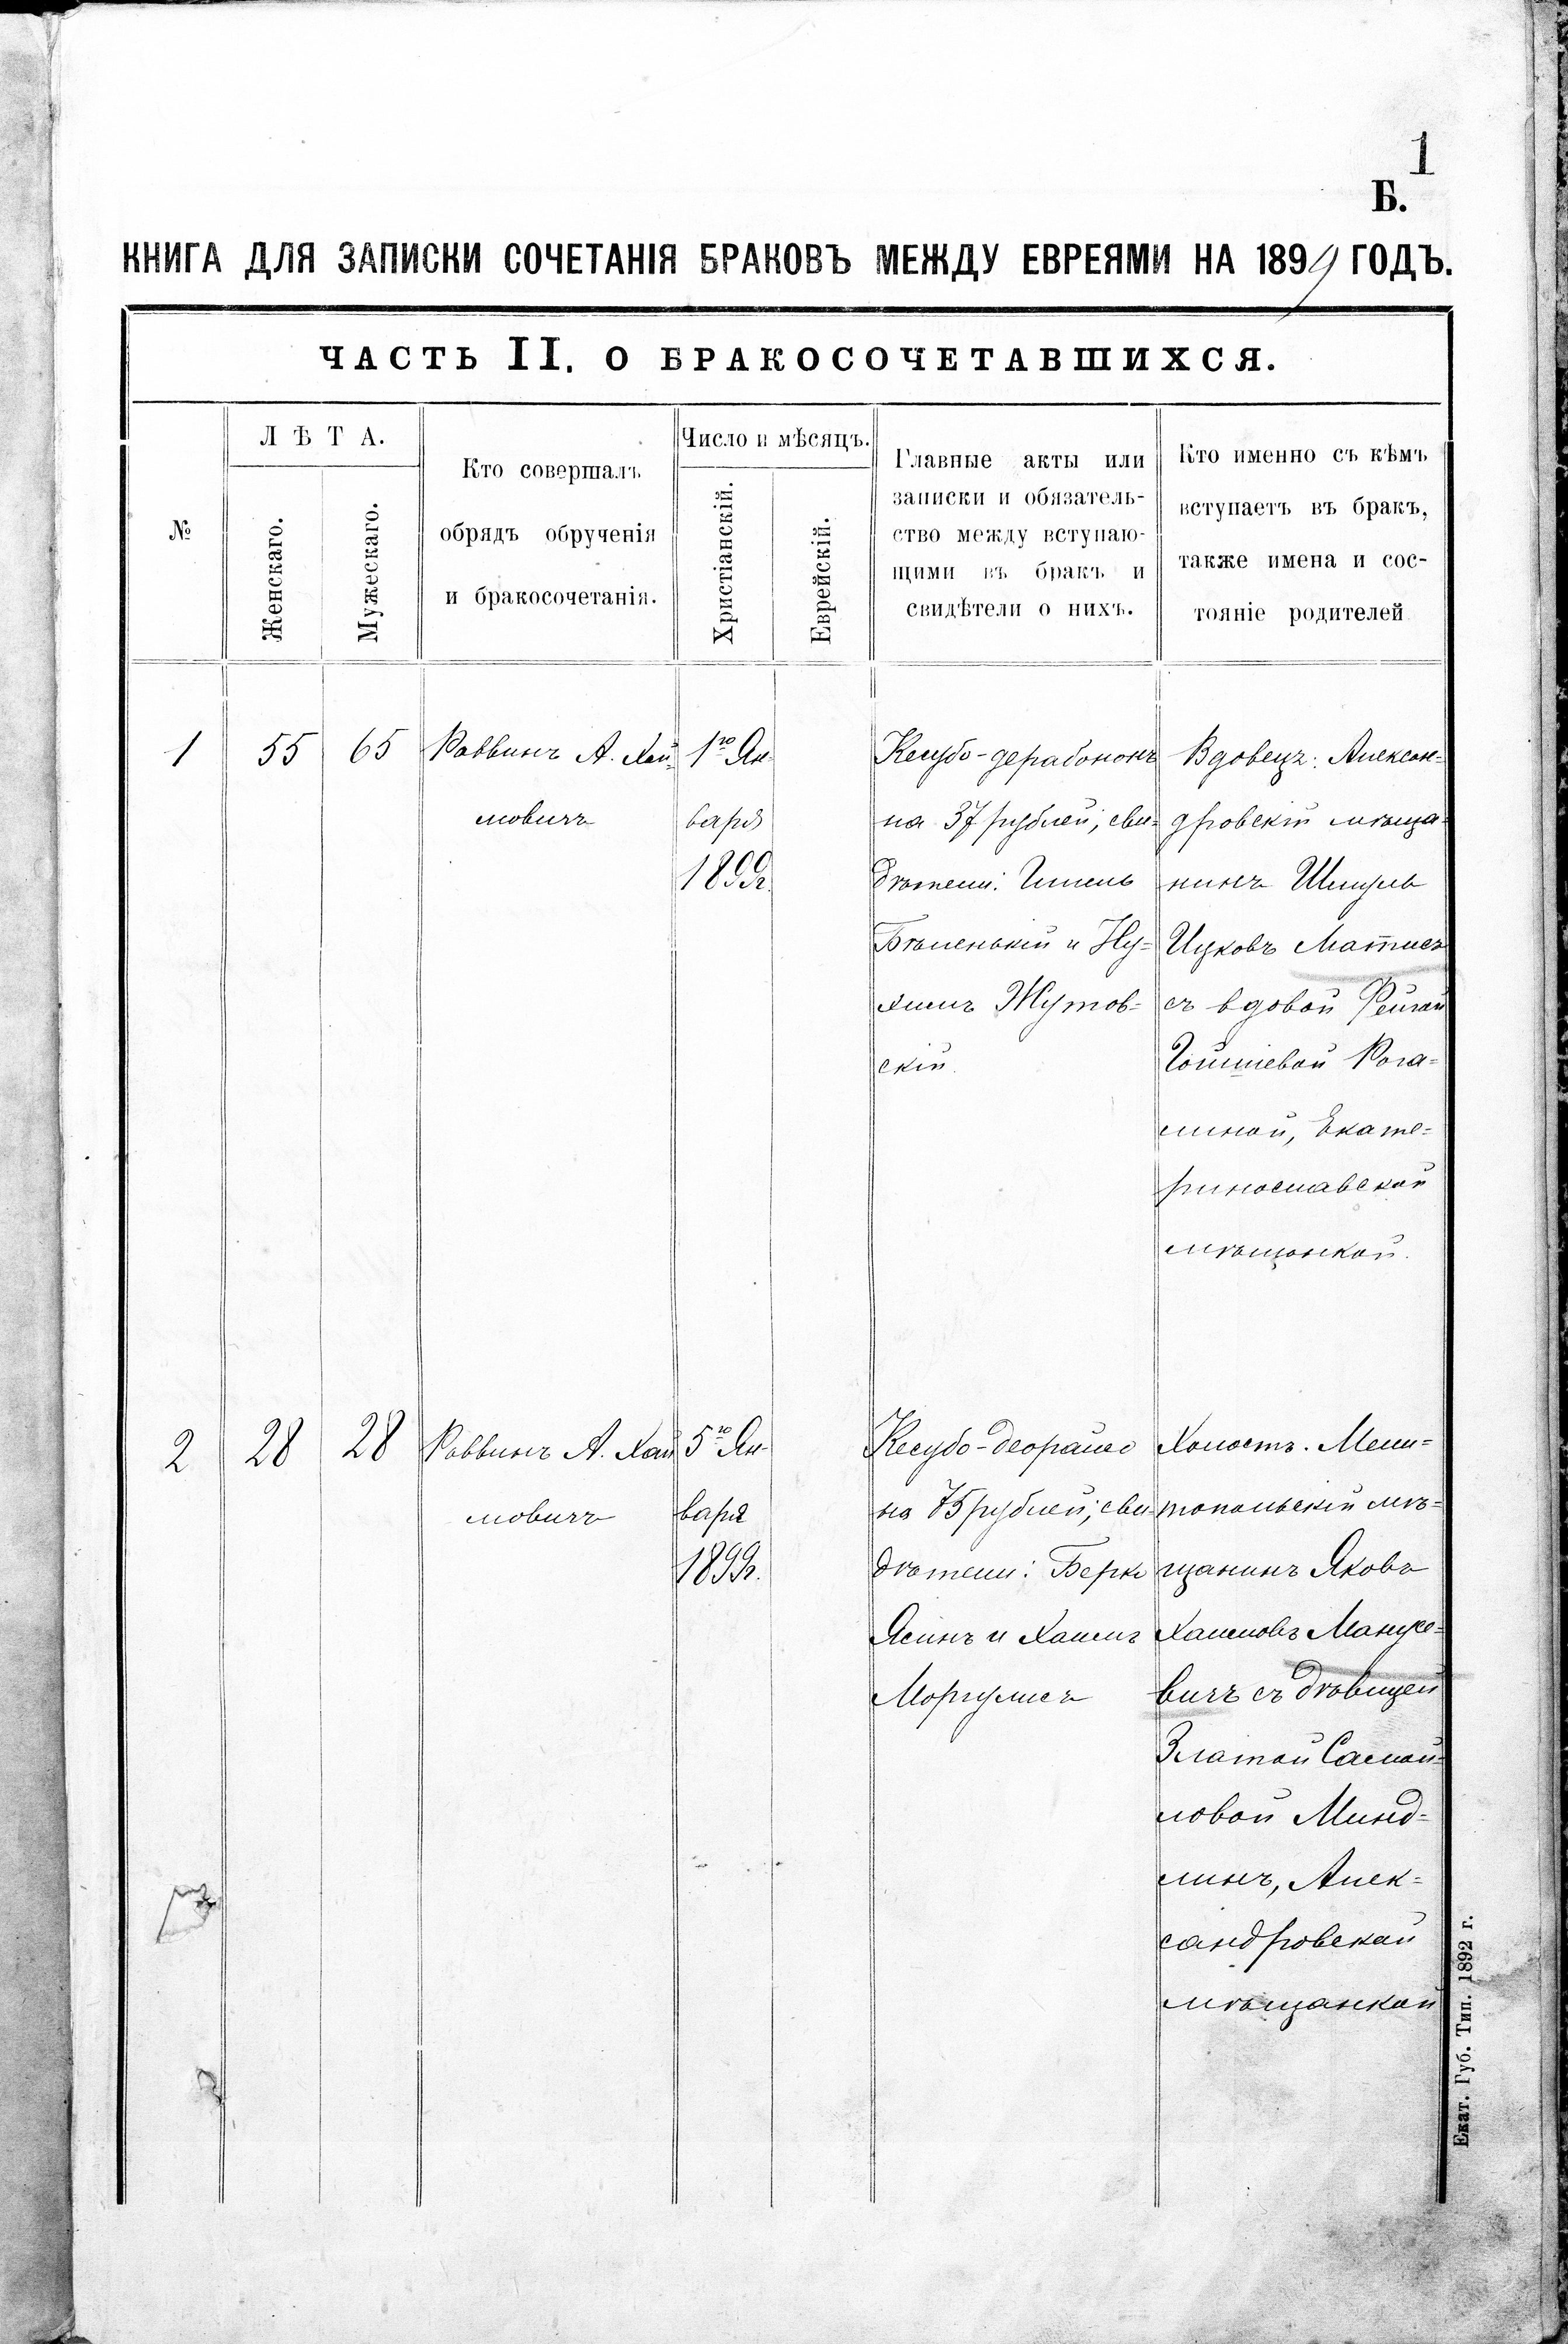 1
Б.
КНИГА ДЛЯ ЗАПИСКИ СОЧЕТАНІЯ БРАКОВЪ МЕЖДУ ЕВРЕЯМИ НА 1899 ГОДЪ.
ЧАСТЬ II. О БРАКОСОЧЕТАВШИХСЯ.
№
ЛѢТА.
Женскаго.
Мужескаго.
Кто совершалъ
обрядъ обрученія
и бракосочетанія.
Число и мѣсяцъ.
Христіанскій.
Еврейскій.
Главные акты или
записки и обязатель-
ство между вступаю-
щими въ бракъ и
свидѣтели о нихъ.
Кто именно съ кѣмъ
вступаетъ въ бракъ,
также имена и сос-
тояніе родителей
1
55
65
Раввинъ А. Хай-
мовичъ
1го Ян-
варя
1899г.
Кесубо-дерабононъ
на 37 рублей, сви-
дѣтели: Гилель
Бѣленькій и Ну-
химъ Жутов-
скій.
Вдовецъ: Алексан-
дровскій мѣща-
нинъ Шмуль
Ицковъ Матисъ
съ вдовой Фейгой
Рога-
линой, Екате-
ринославской
мѣщанкой.
2
28
28
Раввинъ А. Хай
мовичъ
5го Ян-
варя
1899г.
Кесубо-деорайсо
на 75 рублей; сви-
дѣтели: Берко
Ясинъ и Хаимъ
Моргулисъ
Холостъ. Мели-
топольскій мѣ-
щанинъ Яковъ
Хаимовъ Мануке-
вичъ съ дѣвицей
Златой Самой-
ловой Минд-
линъ, Алек-
сандровской
мѣщанкой
Екат. Губ. Тип. 1892 г.